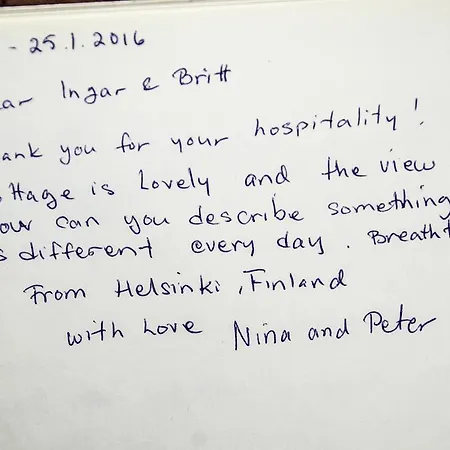 - 25.1.2016
ar Ingar & Britt
ank you for your hospitality!
ttage is lovely and the view
ow can you describe something
s different every day. Breatht
From Helsinki, Finland
with love Nina and Peter